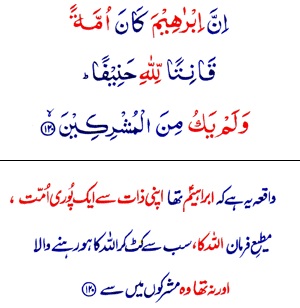 اِنَّ اِبْرٰهِيْمَ كَانَ اُمَّةً
قَانِتًا لِّلّٰهِ حَنِيْفًا ؕ
وَلَمْ يَكُ مِنَ الْمُشْرِكِيْنَ ۙ﴿۱۲۰﴾
واقعہ یہ ہے کہ ابراہیمؑ تھا اپنی ذات سے ایک پُوری اُمّت ،
مطیعِ فرمان اللہ کا، سب سے کٹ کر اللہ کا ہو رہنے والا
اور نہ تھا وہ مشرکوں میں سے ﴿۱۲۰﴾